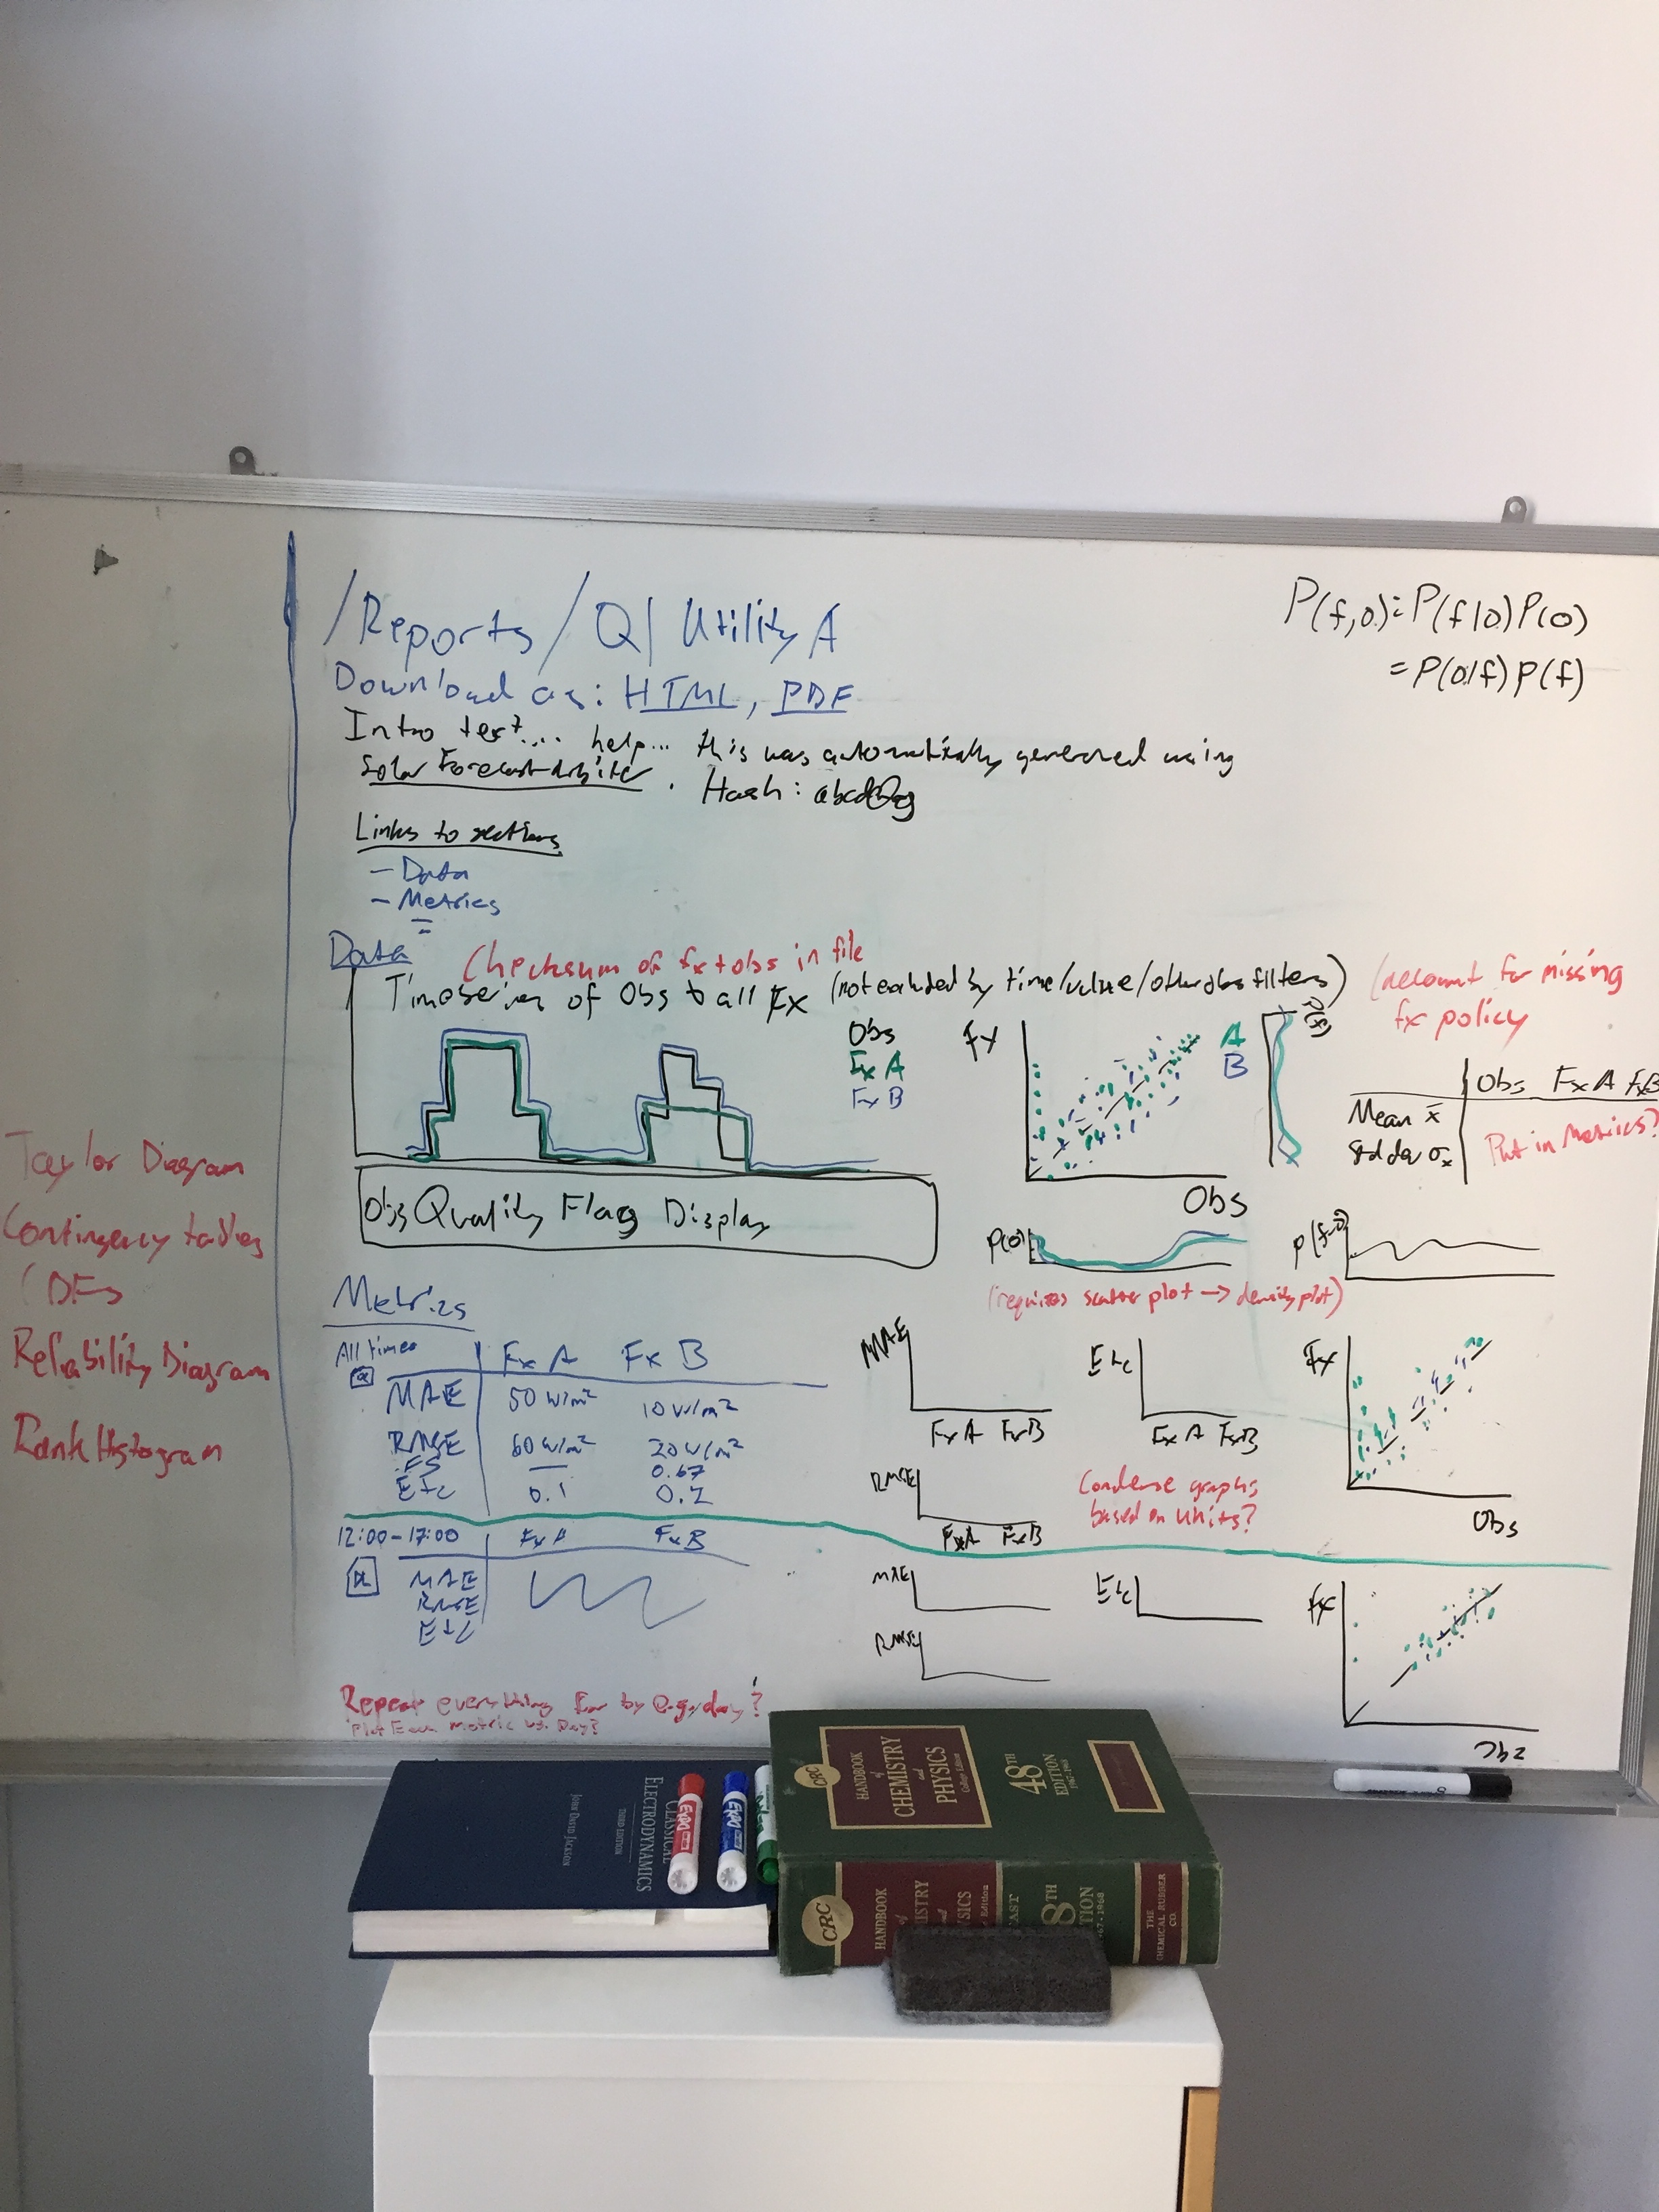 /Reports/Q1 Utility A
Download as: HTML, PDF
Intro text.... help... this was automatically generated using
Solar Forecast Arbiter. Hash:
Links to sections
- Data
- Metrics
P(f,o)=P(f|o)P(o)
=P(o|f)P(f)
Data
Checksum of fx + obs in file
Timeseries of Obs & all Fx (not excluded by time/value/other obs filters)
(account for missing
fx policy
Obs
Fx A
Fx B
Fx
A
B
Obs
Obs Fx A Fx B
Mean x̄
Std dev σx
Put in metrics?
Obs Quality Flag Display
P(o)
P(f-o)
(requires scatter plot → density plot)
Taylor Diagram
Contingency tables
CDFs
Reliability Diagram
Rank Histogram
Metrics
All times
Fx A Fx B
MAE 50 W/m² 10 W/m²
RMSE 60 W/m² 20 W/m²
FS — 0.67
Etc 0.1 0.2
MAE
Fx A Fx B
Etc
Fx A Fx B
RMSE
Fx A Fx B
Condense graphs
based on units?
Fx
Obs
12:00-17:00 Fx A Fx B
MAE
RMSE
Etc
MAE
Etc
RMSE
Fx
Obs
Repeat everything for by e.g. day?
Plot Each metric vs. Day?
CLASSICAL
ELECTRODYNAMICS
THIRD EDITION
JOHN DAVID JACKSON
EXPO
EXPO
CRC
HANDBOOK
of
CHEMISTRY
and
PHYSICS
College Edition
48TH
EDITION
1967-1968
CRC
HANDBOOK
of
THE
CHEMICAL RUBBER
CO.